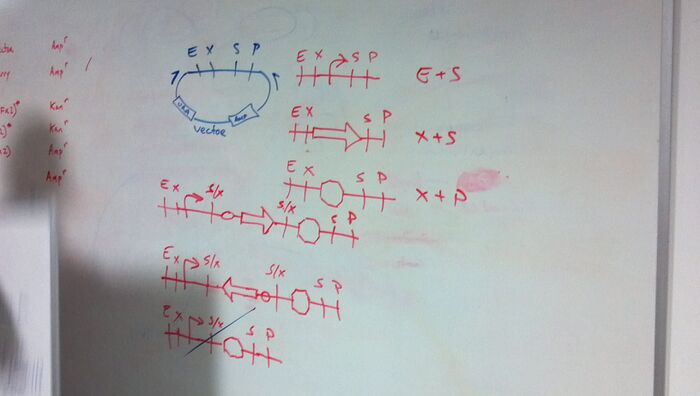 Amp^r
Amp^r /
Kan^r
Kan^r
Amp^r
Amp^r
E X S P
Amp
vector
E X S P E+S
E X S P X+S
E X S P X+P
E X S/X S/X S P
E X S/X S/X S P
E X S/X S P